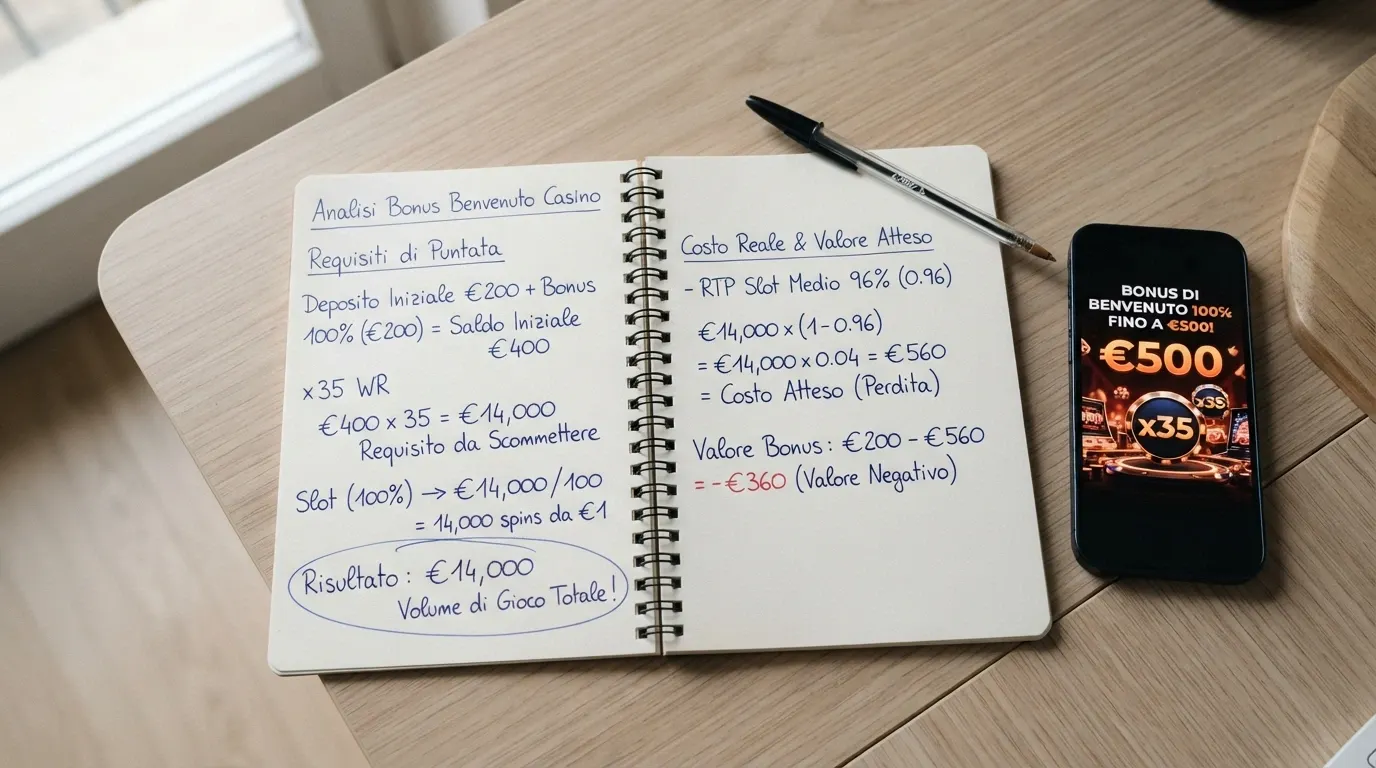 Analisi Bonus Benvenuto Casino
Requisiti di Puntata
Deposito Iniziale €200 + Bonus
100% (€200) = Saldo Iniziale
€400
x35 WR
€400 x 35 = €14,000
Requisito da Scommettere
Slot (100%) → €14,000/100
= 14,000 spins da €1
Risultato: €14,000
Volume di Gioco Totale!
Costo Reale & Valore Atteso
- RTP Slot Medio 96% (0.96)
€14,000 x (1-0.96)
= €14,000 x 0.04 = €560
= Costo Atteso (Perdita)
Valore Bonus: €200 - €560
= -€360 (Valore Negativo)
BONUS DI
BENVENUTO 100%
FINO A €500!
€500
x35
x35